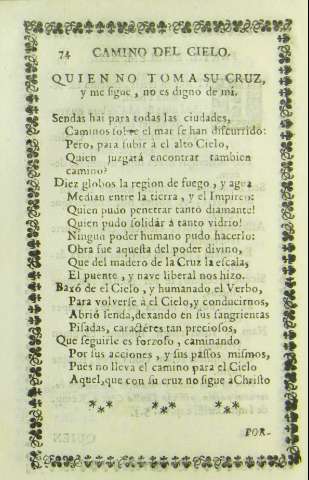 74 CAMINO DEL CIELO.
QUIEN NO TOMA SU CRUZ,
y me sigue, no es digno de mi.
Sendas hai para todas las ciudades,
Caminos sobre el mar se han discurrido:
Pero, para subir à el alto Cielo,
Quien juzgará encontrar tambien
camino?
Diez globos la region de fuego, y agua
Median entre la tierra, y el Impireo:
Quien pudo penetrar tanto diamante!
Quien pudo solidar á tanto vidrio!
Ningun poder humano pudo hacerlo:
Obra fue aquesta del poder divino,
Que del madero de la Cruz la escala,
El puente, y nave liberal nos hizo.
Baxó de el Cielo, y humanado el Verbo,
Para volverse á el Cielo, y conducirnos,
Abrió senda, dexando en sus sangrientas
Pisadas, caractéres tan preciosos,
Que seguirle es forzoso, caminando
Por sus acciones, y sus passos mismos,
Pues no lleva el camino para el Cielo
Aquel, que con su cruz no sigue a Christo
*** *** ***
POR-
QUIEN